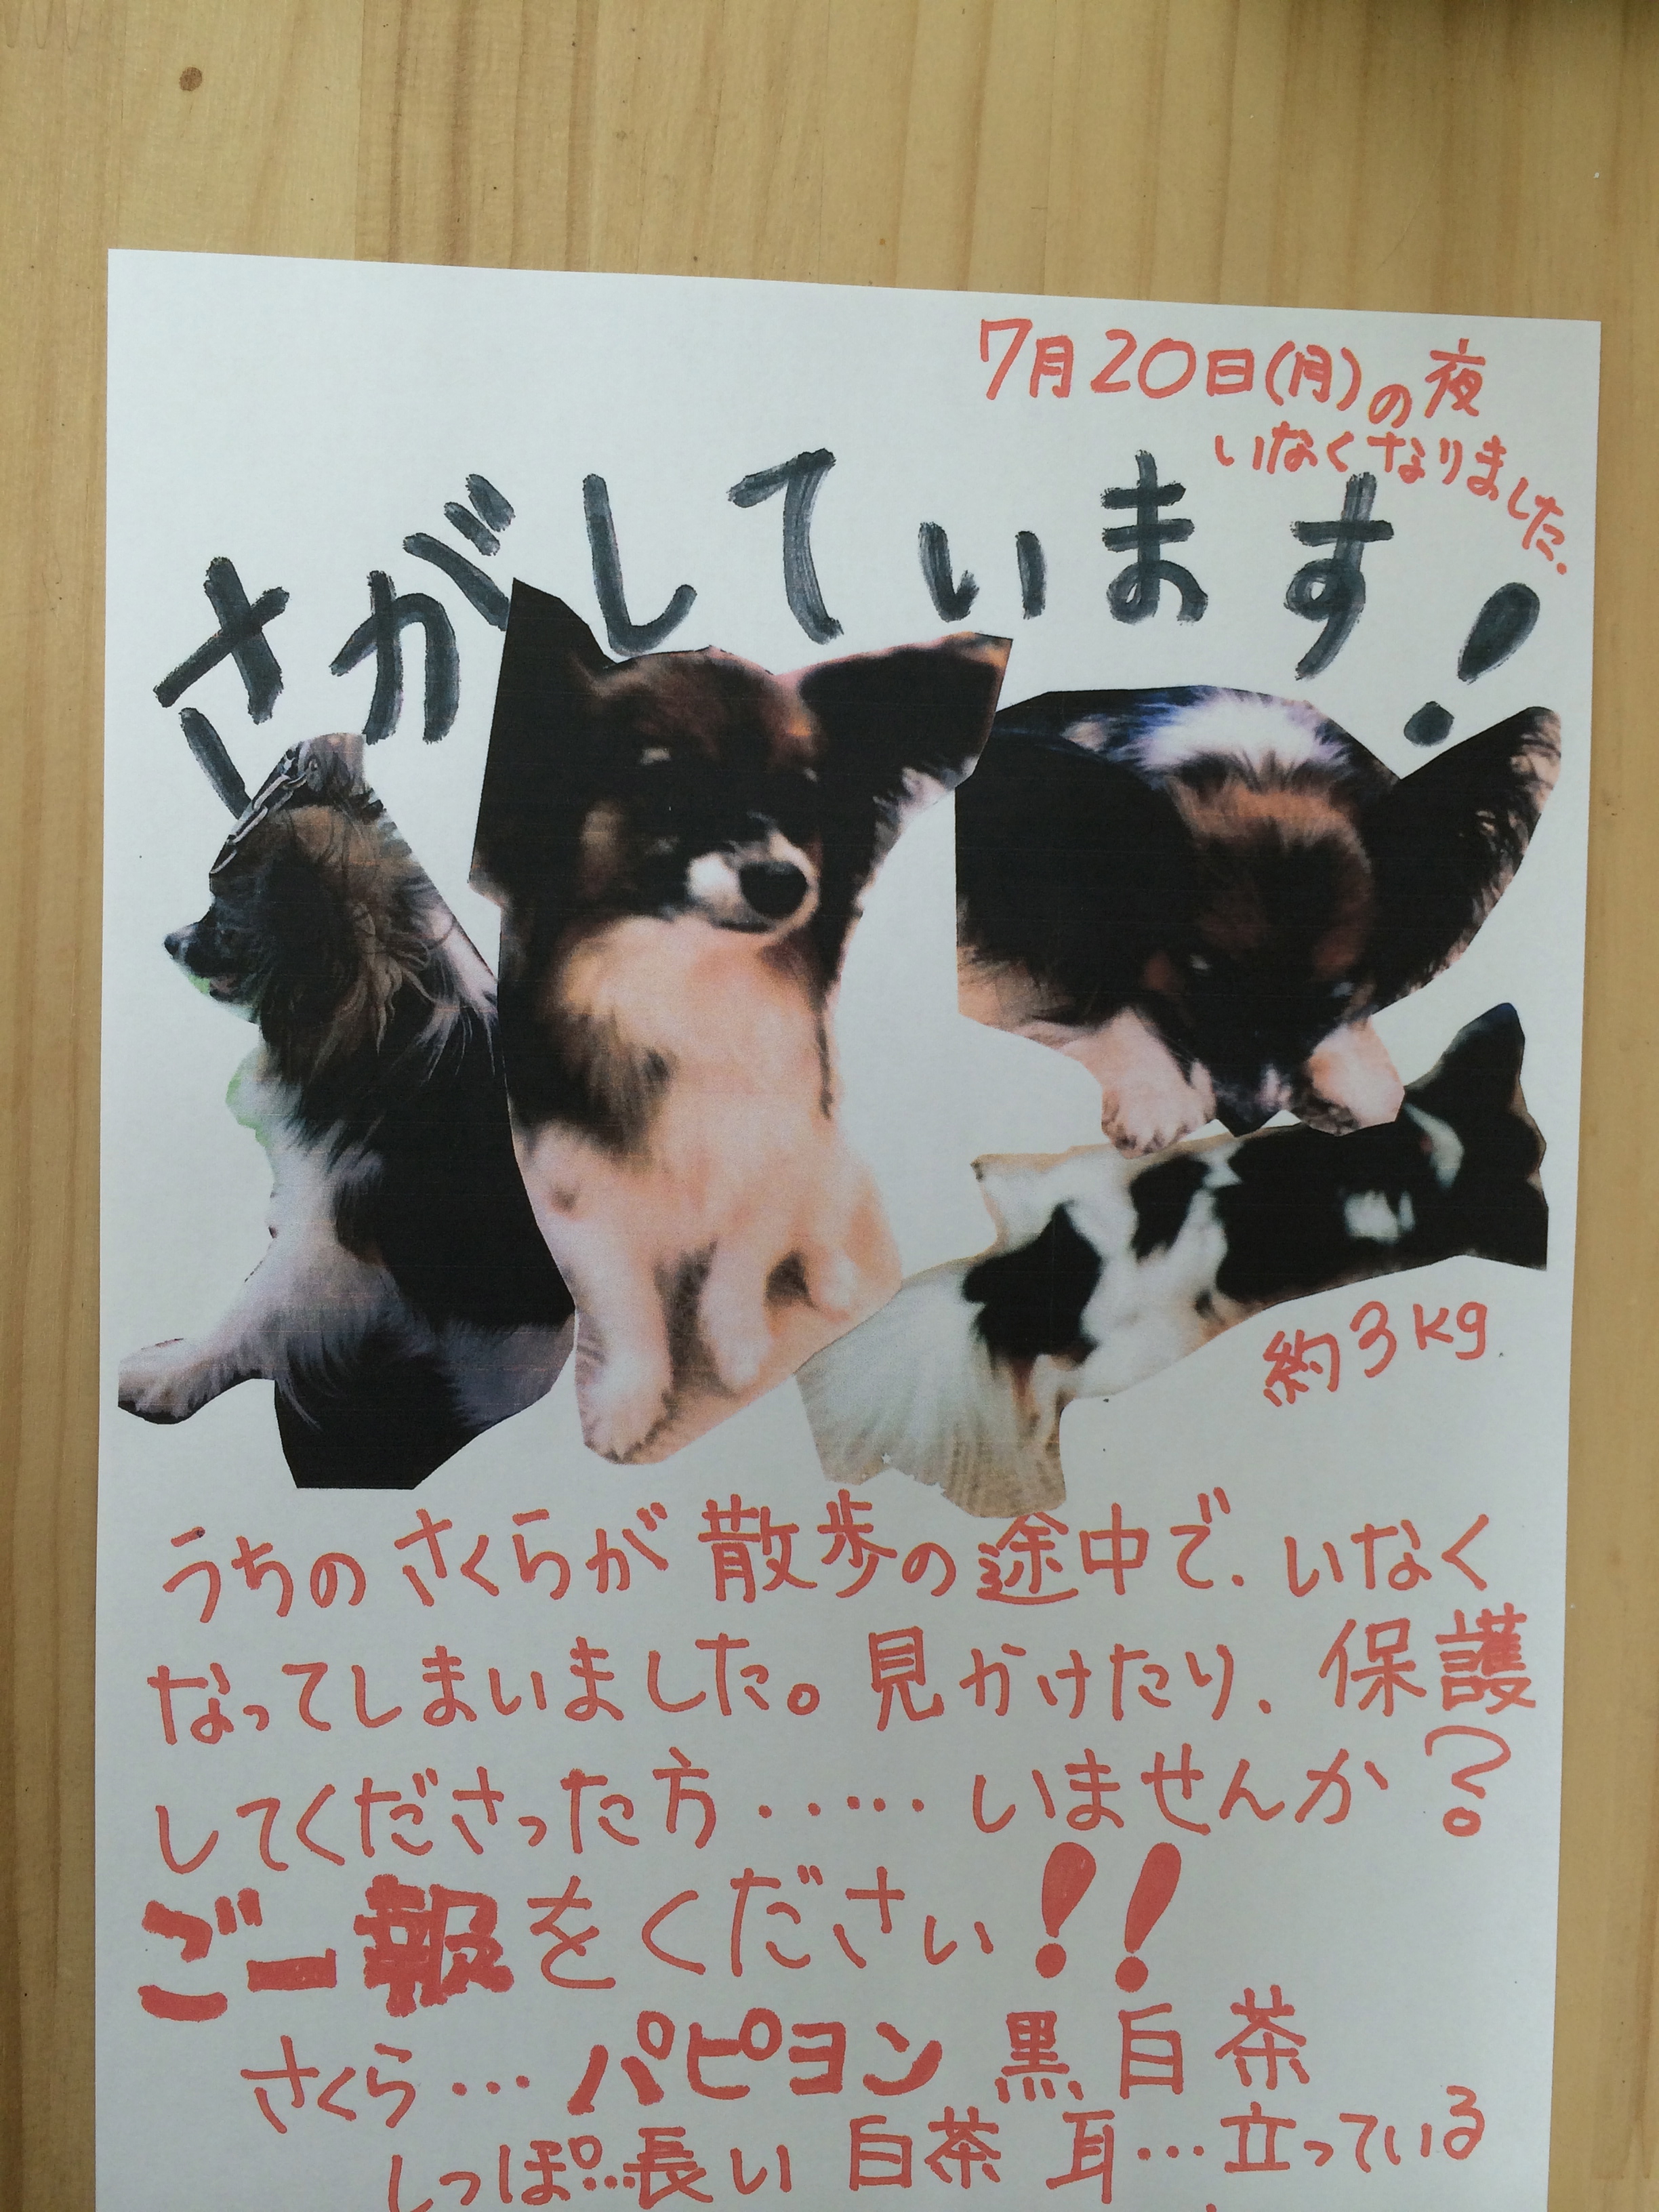 7月20日(月)の夜
いなくなりました.
さがしています!
約3kg
うちのさくらが散歩の途中で、いなく
なってしまいました。見かけたり、保護
してくださった方・・・・・いませんか?
ご一報をください!!
さくら…パピヨン 黒白茶
しっぽ…長い 白茶 耳…立っている